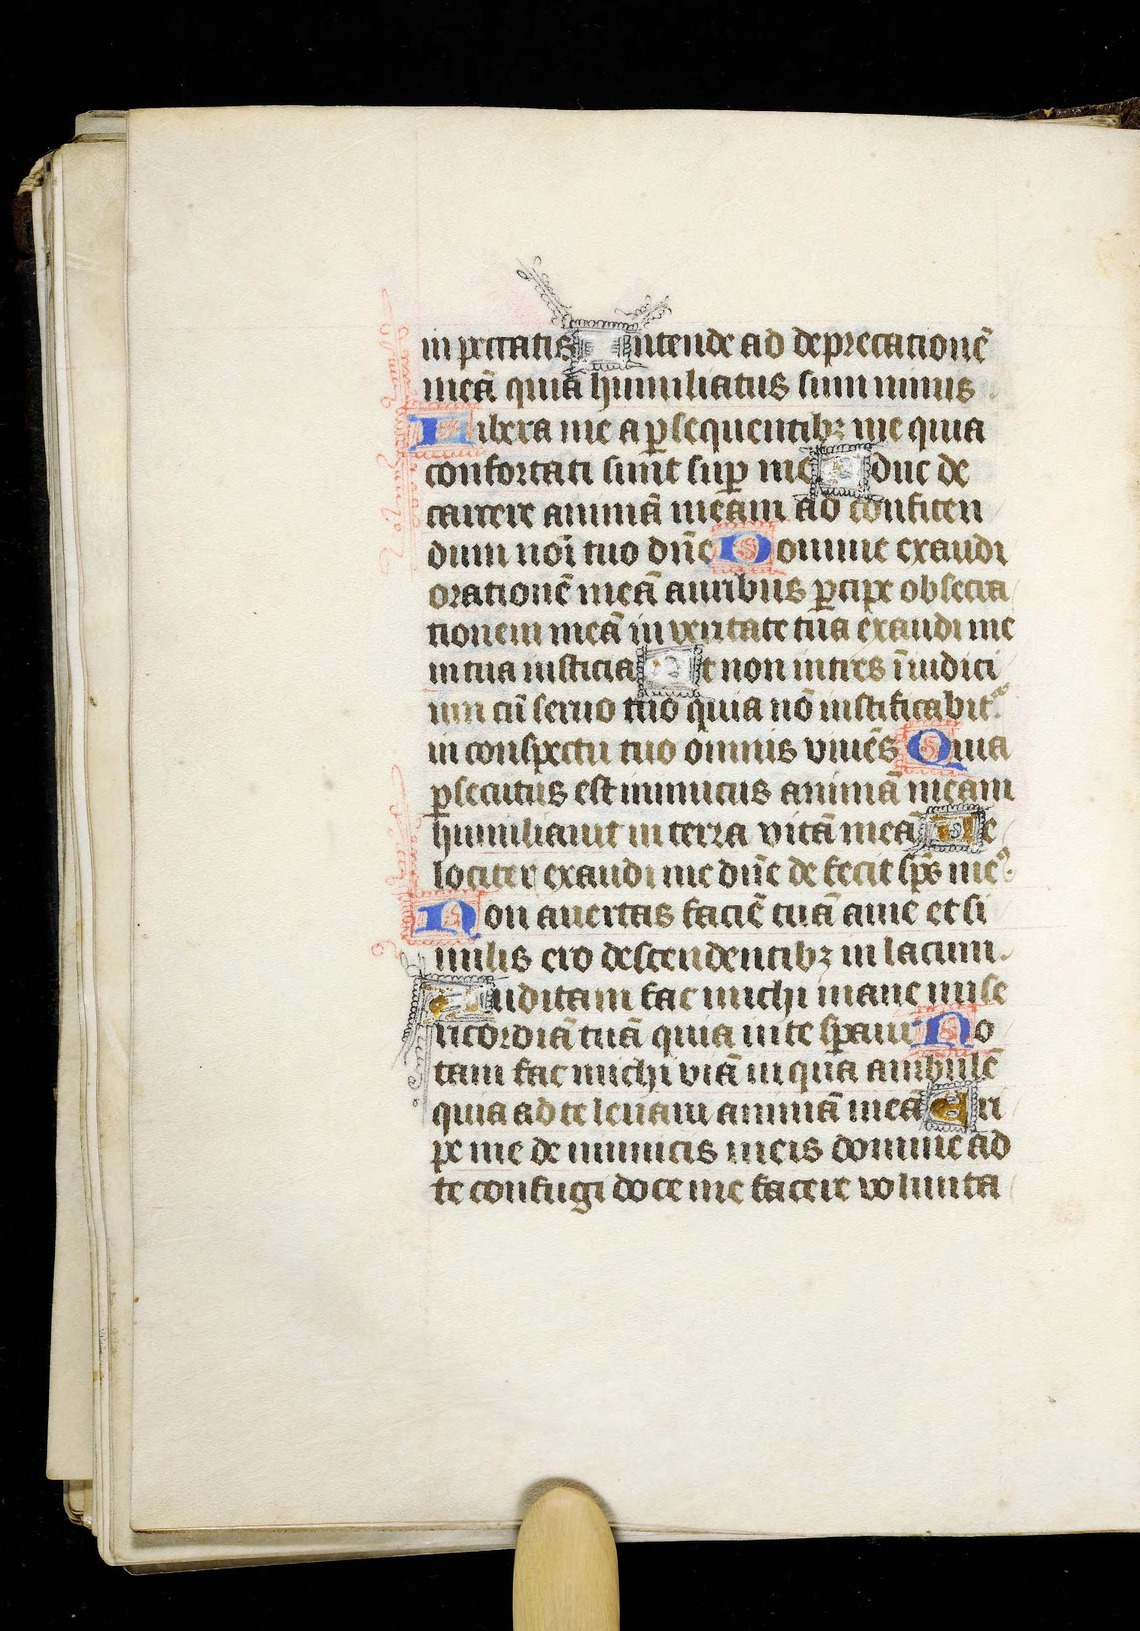 in peccatis Intende ad deprecationē
meā quia humiliatus sum nimis
Libera me a ꝑsequentibꝫ me quia
confortati sunt suꝑ me Educ de
carcere animā meam ad confiten
dum noī tuo dn̄e Domine exaudi
orationē meā auribus ꝑcipe obsecra
tionem meā in veritate tua exaudi me
in tua iusticia Et non intres ī iudici
um cū seruo tuo quia nō iustificabit᷒
in conspectu tuo omnis viuēs Quia
ꝑsecutus est inimicus animā meam
humiliauit in terra vitā meā Ue
lociter exaudi me dn̄e defecit sp̄s meꝰ
Non auertas faciē tuā a me et si
milis ero descendentibꝫ in lacum
Auditam fac michi mane mise
ricordiā tuā quia in te sꝑaui No
tam fac michi viā in qua ambulē
quia ad te leuaui animā meā Eri
pe me de inimicis meis domine ad
te confugi doce me facere volunta